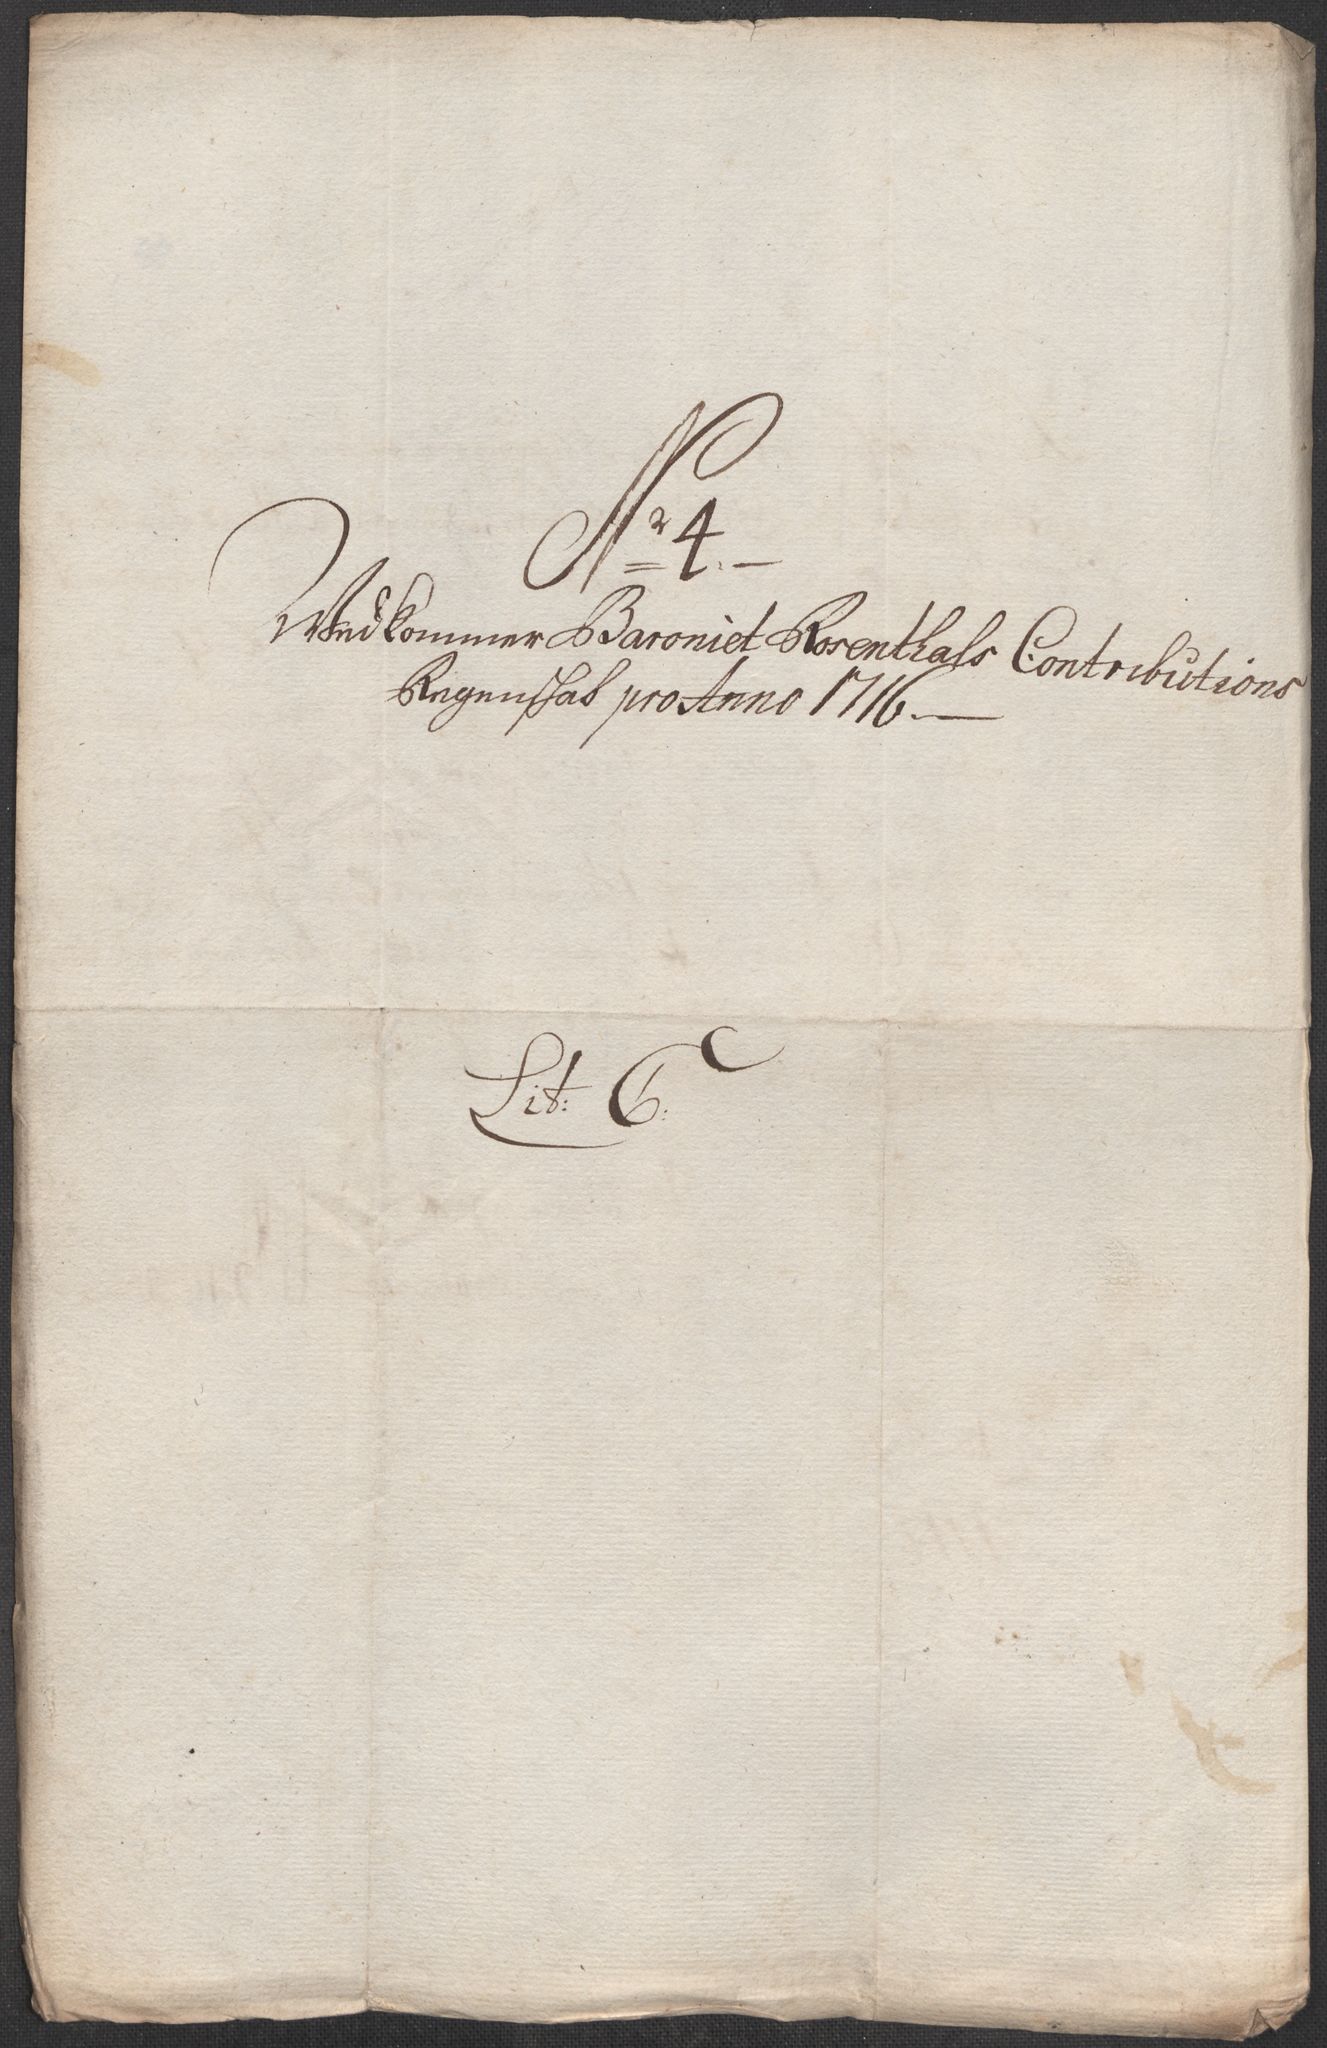 Nr 4.
Wedkommer Baroniet Rosenthals Contributions
Regenskab pro Anno 1716.
Lit: C: